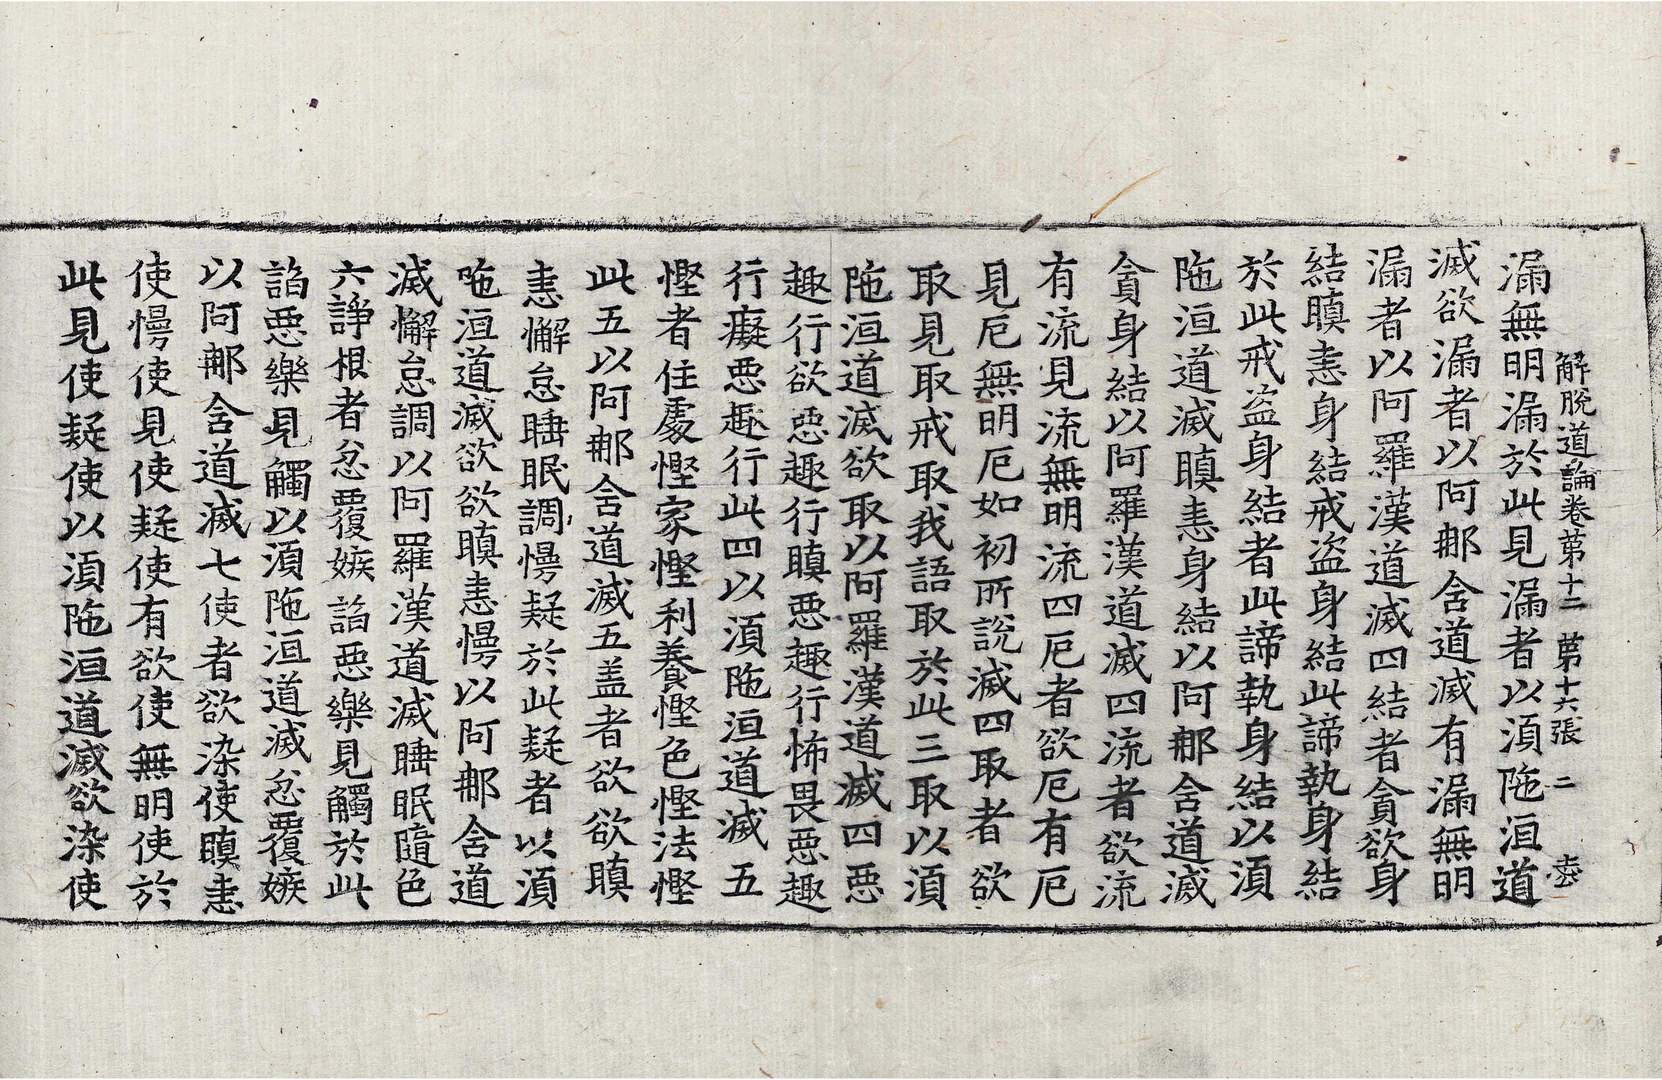 解脫道論卷第十二 第十六張 二
漏無明漏於此見漏者以須陁洹道
滅欲漏者以阿那含道滅有漏無明
漏者以阿羅漢道滅四結者貪欲身
結瞋恚身結戒盜身結此諦執身結
於此戒盜身結者此諦執身結以須
陁洹道滅瞋恚身結以阿那含道滅
貪身結以阿羅漢道滅四流者欲流
有流見流無明流四厄者欲厄有厄
見厄無明厄如初所說滅四取者欲
取見取戒取我語取於此三取以須
陁洹道滅欲取以阿羅漢道滅四惡
趣行欲惡趣行瞋惡趣行怖畏惡趣
行癡惡趣行此四以須陁洹道滅五
慳者住處慳家慳利養慳色慳法慳
此五以阿那含道滅五盖者欲欲瞋
恚懈怠睡眠調慢疑於此疑者以須
陁洹道滅欲欲瞋恚慢以阿那含道
滅懈怠調以阿羅漢道滅睡眠隨色
六諍根者忿覆嫉諂惡樂見觸於此
諂惡樂見觸以須陁洹道滅忿覆嫉
以阿那含道滅七使者欲染使瞋恚
使慢使見使疑使有欲使無明使於
此見使疑使以須陁洹道滅欲染使